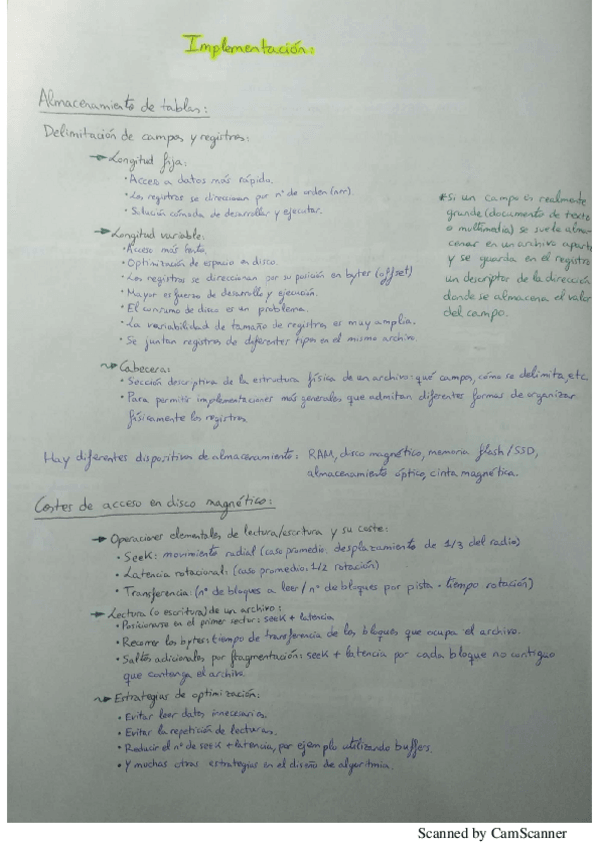 Implementación:
Almacenamiento de tablas:
Delimitación de campos y registros:
Longitud fija:
• Acceso a datos más rápido.
• Los registros se direccionan por nº de orden (nrr).
• Solución cómoda de desarrollar y ejecutar.
Longitud variable:
• Acceso más lento.
• Optimización de espacio en disco.
• Los registros se direccionan por su posición en bytes (offset)
• Mayor esfuerzo de desarrollo y ejecución.
• El consumo de disco es un problema.
• La variabilidad de tamaño de registros es muy amplia.
• Se juntan registros de diferentes tipos en el mismo archivo.
* Si un campo es realmente
grande (documento de texto
o multimedia) se suele alma-
cenar en un archivo aparte
y se guarda en el registro
un descriptor de la dirección
donde se almacena el valor
del campo.
Cabecera:
• Sección descriptiva de la estructura física de un archivo: qué campos, cómo se delimita, etc.
• Para permitir implementaciones más generales que admitan diferentes formas de organizar
físicamente los registros
Hay diferentes dispositivos de almacenamiento: RAM, disco magnético, memoria flash/SSD,
almacenamiento óptico, cinta magnética.
Costes de acceso en disco magnético:
Operaciones elementales de lectura/escritura y su coste:
• Seek: movimiento radial (caso promedio: desplazamiento de 1/3 del radio)
• Latencia rotacional: (caso promedio: 1/2 rotación)
• Transferencia: (nº de bloques a leer / nº de bloques por pista · tiempo rotación)
Lectura (o escritura) de un archivo:
• Posicionarse en el primer sector: seek + latencia
• Recorrer los bytes: tiempo de transferencia de los bloques que ocupa el archivo.
• Saltos adicionales por fragmentación: seek + latencia por cada bloque no contiguo
que contenga el archivo
Estrategias de optimización:
• Evitar leer datos innecesarios.
• Evitar la repetición de lecturas.
• Reducir el nº de seek + latencia, por ejemplo utilizando buffers.
• Y muchas otras estrategias en el diseño de algoritmia.
Scanned by CamScanner